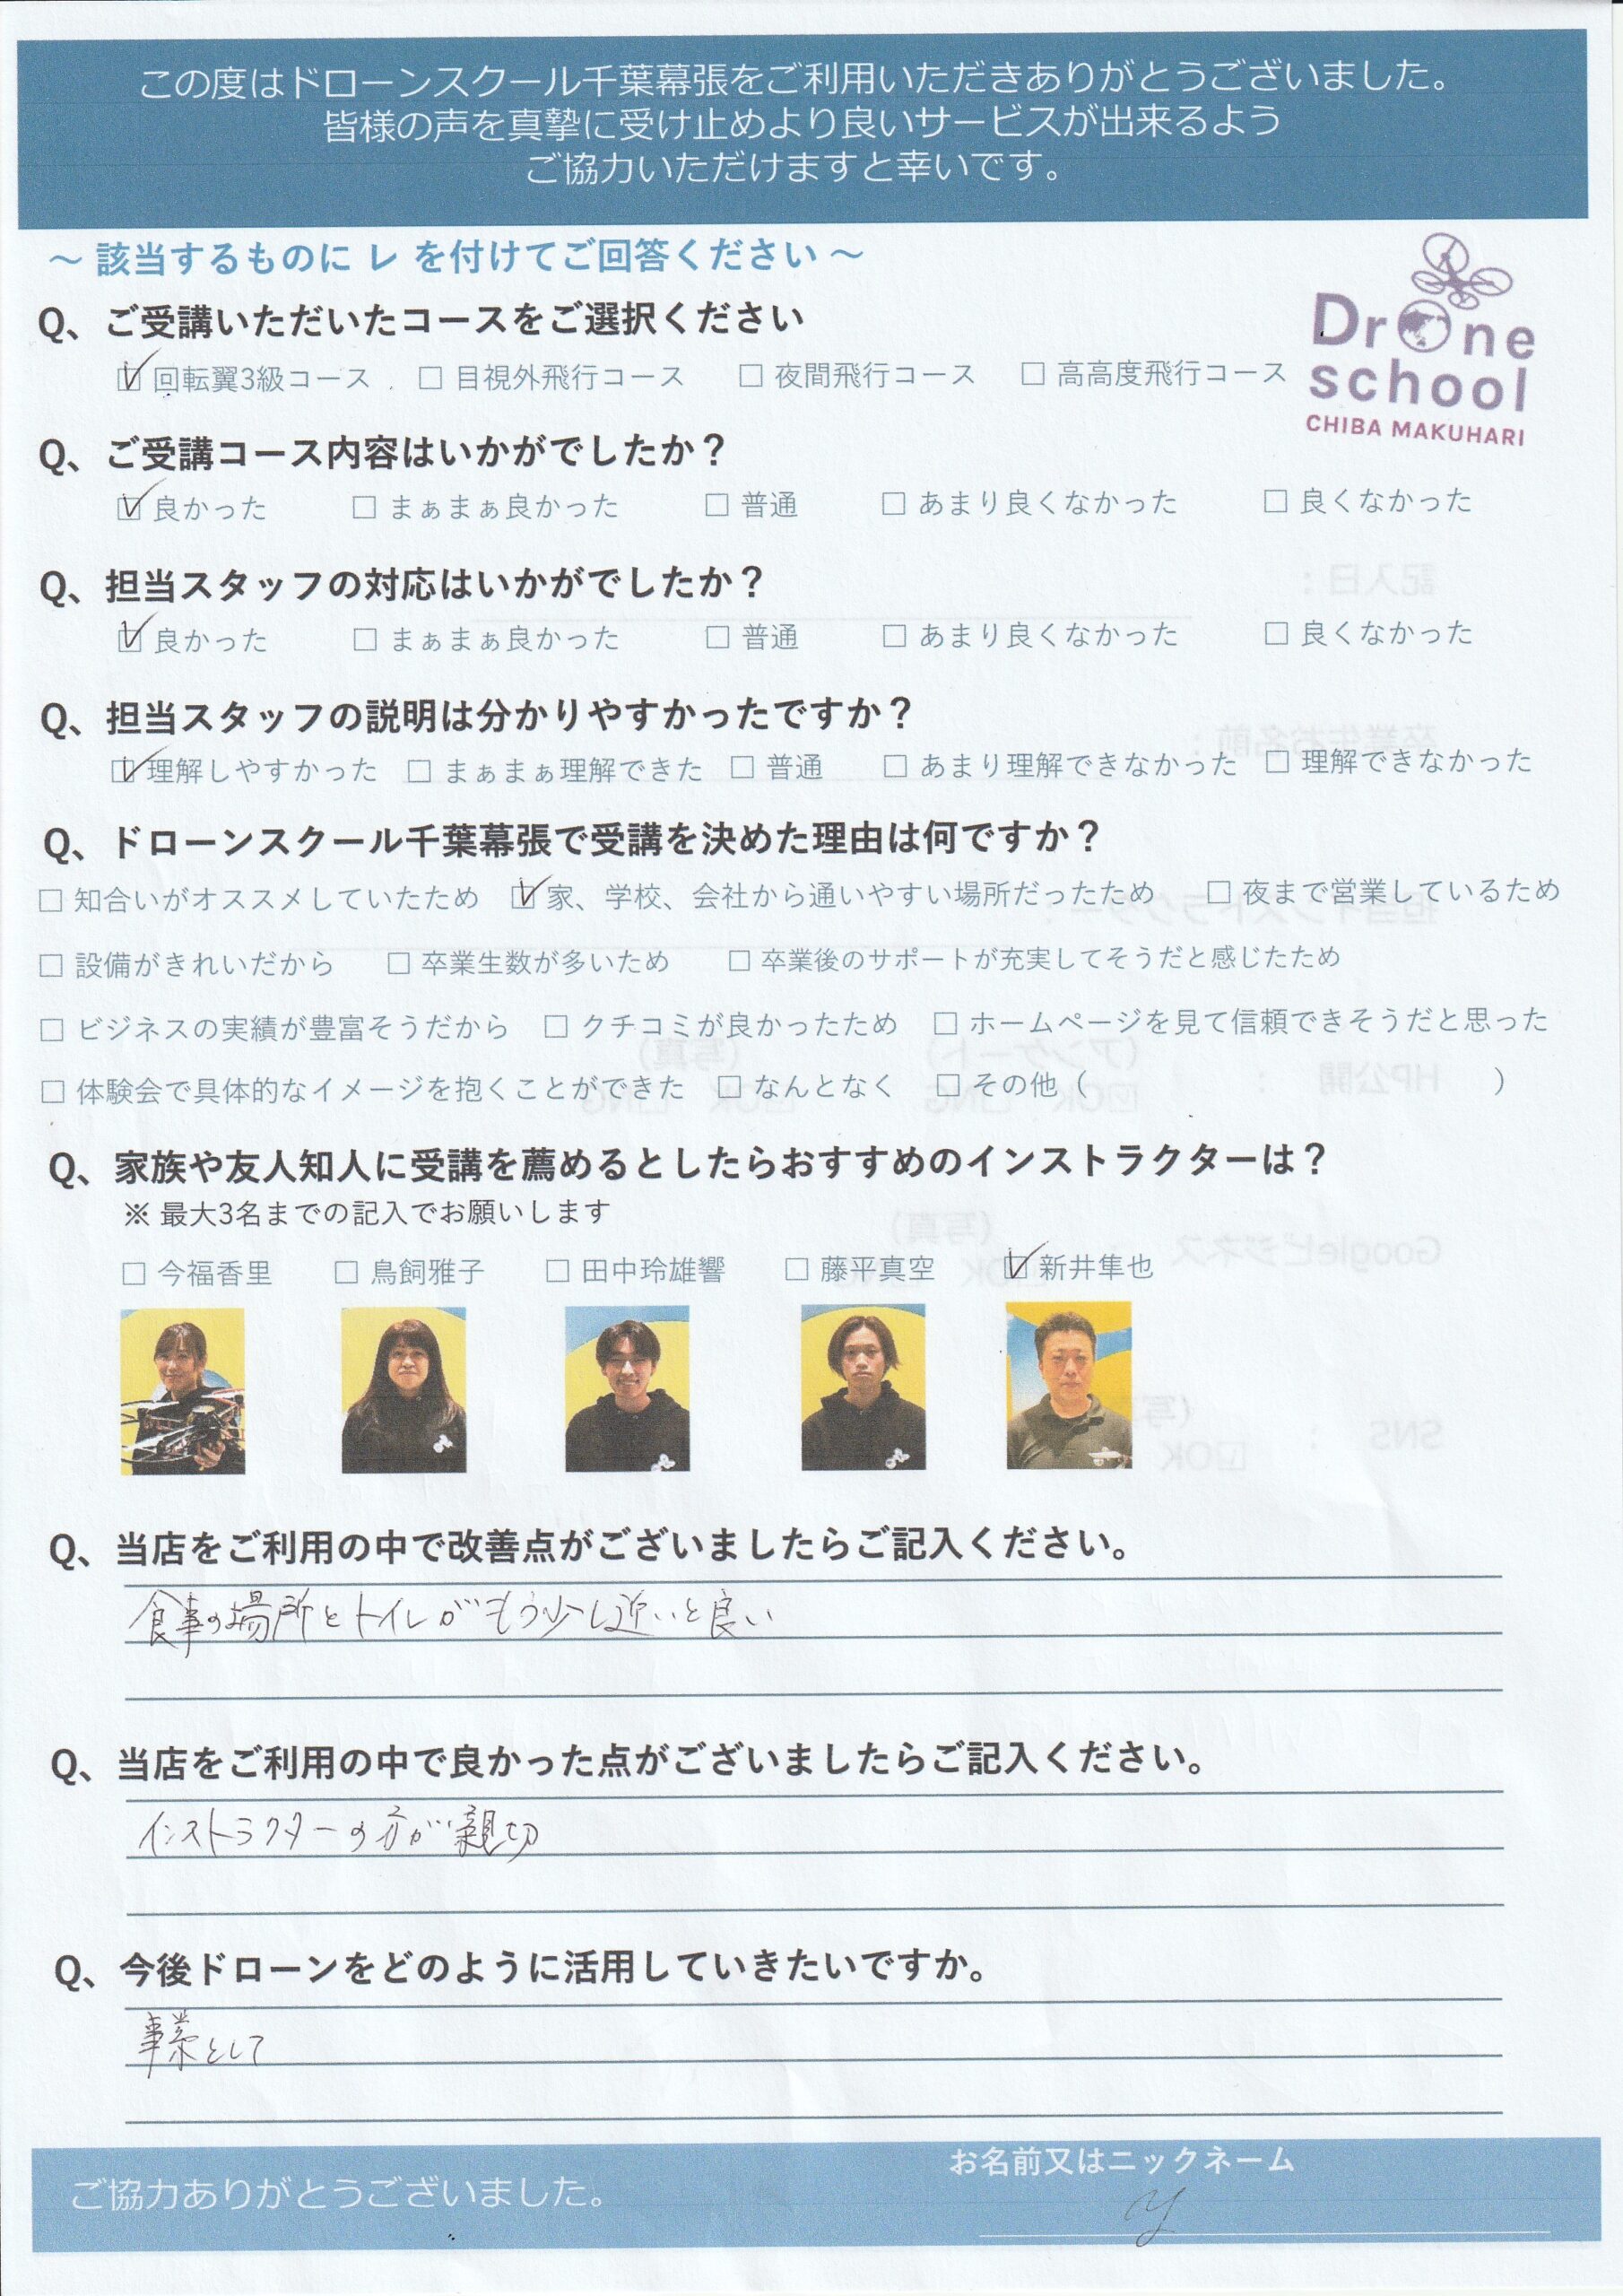 この度はドローンスクール千葉幕張をご利用いただきありがとうございました。
皆様の声を真摯に受け止めより良いサービスが出来るよう
ご協力いただけますと幸いです。
～ 該当するものに レ を付けてご回答ください ～
Drone
school
CHIBA MAKUHARI
Q、ご受講いただいたコースをご選択ください
☑ 回転翼3級コース □ 目視外飛行コース □ 夜間飛行コース □ 高高度飛行コース
Q、ご受講コース内容はいかがでしたか？
☑ 良かった □ まぁまぁ良かった □ 普通 □ あまり良くなかった □ 良くなかった
Q、担当スタッフの対応はいかがでしたか？
☑ 良かった □ まぁまぁ良かった □ 普通 □ あまり良くなかった □ 良くなかった
Q、担当スタッフの説明は分かりやすかったですか？
☑ 理解しやすかった □ まぁまぁ理解できた □ 普通 □ あまり理解できなかった □ 理解できなかった
Q、ドローンスクール千葉幕張で受講を決めた理由は何ですか？
□ 知合いがオススメしていたため ☑ 家、学校、会社から通いやすい場所だったため □ 夜まで営業しているため
□ 設備がきれいだから □ 卒業生数が多いため □ 卒業後のサポートが充実してそうだと感じたため
□ ビジネスの実績が豊富そうだから □ クチコミが良かったため □ ホームページを見て信頼できそうだと思った
□ 体験会で具体的なイメージを抱くことができた □ なんとなく □ その他（ ）
Q、家族や友人知人に受講を薦めるとしたらおすすめのインストラクターは？
※ 最大3名までの記入でお願いします
□ 今福香里 □ 鳥飼雅子 □ 田中玲雄響 □ 藤平真空 ☑ 新井隼也
Q、当店をご利用の中で改善点がございましたらご記入ください。
食事の場所とトイレがもう少し近いと良い
Q、当店をご利用の中で良かった点がございましたらご記入ください。
インストラクターの方が親切
Q、今後ドローンをどのように活用していきたいですか。
事業として
お名前又はニックネーム
ご協力ありがとうございました。
y